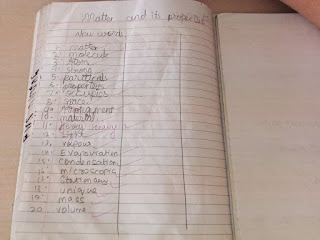 Matter and its
New words
1. matter
2. molecule
3. Atom
4. strong
5.
6. properties
7. occupies
8. space
9. Arrangement
10. material
11. heavy
12. Light
13.
14. Evaporation
15. Condensation
16. microscopic
17. Stationary
18. unique
19. mass
20. volume